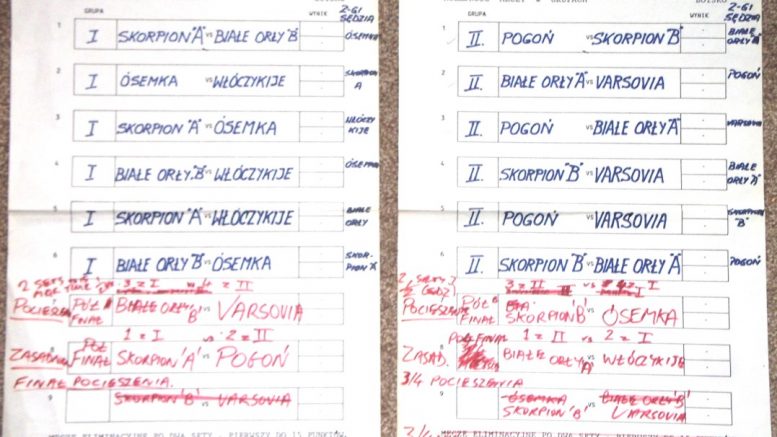 GRUPA WYNIK 2-GI SĘDZIA
1 I SKORPION "A" vs BIAŁE ORŁY "B" ÓSEMKA
2 I ÓSEMKA vs WŁÓCZYKIJE SKORPION A
3 I SKORPION "A" vs ÓSEMKA WŁÓCZYKIJE
4 I BIAŁE ORŁY "B" vs WŁÓCZYKIJE ÓSEMKA
5 I SKORPION "A" vs WŁÓCZYKIJE BIAŁE ORŁY
6 I BIAŁE ORŁY "B" vs ÓSEMKA SKORPION "A"
2 SETS
3 z I vs 4 z II
POCIESZENIA PÓŁ FINAŁ BIAŁE ORŁY 'B' VARSOVIA
1 z I vs 2 z II
8 PÓŁ FINAŁ SKORPION 'A' vs POGOŃ
FINAŁ POCIESZENIA.
9 SKORPION 'B' vs VARSOVIA
MECZE ELIMINACYJNE PO DWA SETY - PIERWSZY DO 15 PUNKTÓW,
GRUPA WYNIK 2-GI SĘDZIA
II. POGOŃ vs SKORPION "B" BIAŁE ORŁY "A"
2 II BIAŁE ORŁY "A" vs VARSOVIA POGOŃ
3 II. POGOŃ vs BIAŁE ORŁY "A" VARSOVIA
4 II. SKORPION "B" vs VARSOVIA BIAŁE ORŁY "A"
5 II. POGOŃ vs VARSOVIA SKORPION "B"
6 II. SKORPION "B" vs BIAŁE ORŁY "A" POGOŃ
2 SETS
3 z II vs z I
PÓŁ FINAŁ SKORPION 'B' vs ÓSEMKA
PÓŁ FINAŁ 1 z II vs 2 z I
ZASAD. BIAŁE ORŁY A vs WŁÓCZYKIJE
3/4 POCIESZENIA
9 ÓSEMKA vs BIAŁE ORŁY 'B'
SKORPION 'B' VARSOVIA
3/4